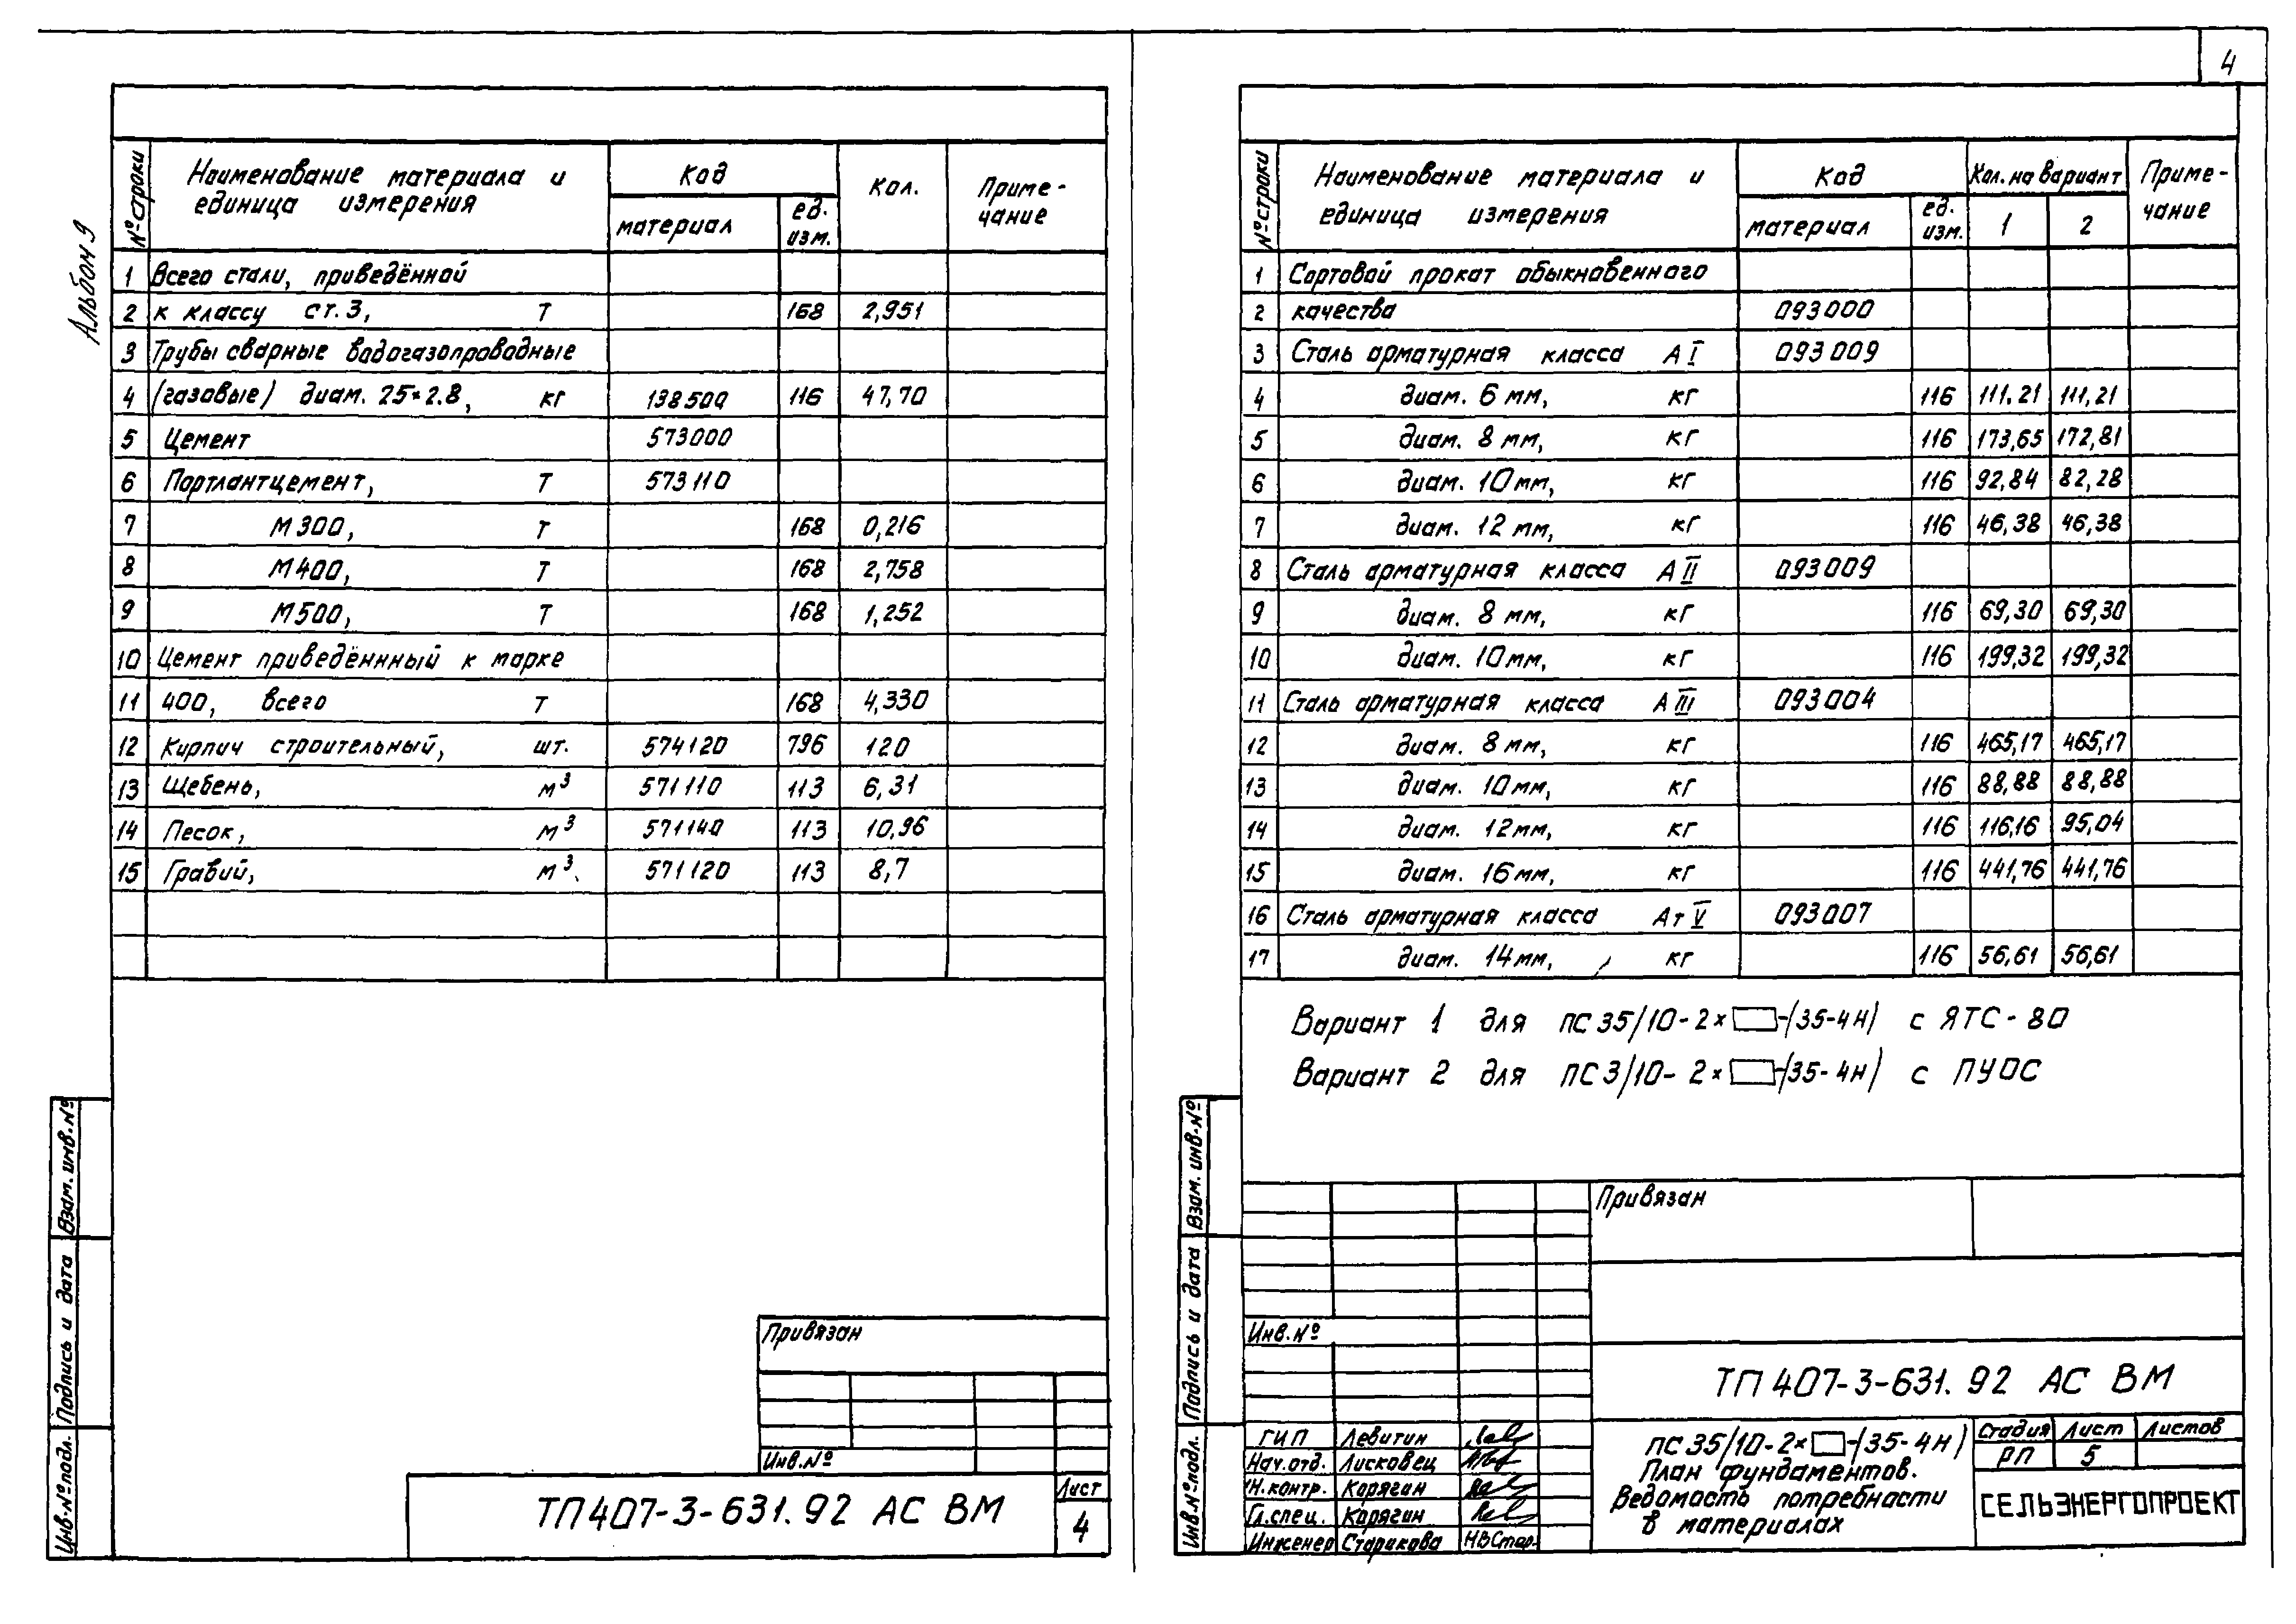 4
Альбом 9
№ строки Наименование материала и единица измерения Код Кол. Приме-чание
материал ед. изм.
1 Всего стали, приведённой
2 к классу ст. 3, Т 168 2,951
3 Трубы сварные водогазопроводные
4 (газовые) диам. 25×2.8, кг 138500 116 47,70
5 Цемент 573000
6 Портлантцемент, Т 573110
7 М300, Т 168 0,216
8 М400, Т 168 2,758
9 М500, Т 168 1,252
10 Цемент приведённный к марке
11 400, всего Т 168 4,330
12 Кирпич строительный, шт. 574120 796 120
13 Щебень, м³ 571110 113 6,31
14 Песок, м³ 571140 113 10,96
15 Гравий, м³. 571120 113 8,7
Привязан
Инв.№
ТП407-3-631.92 АС ВМ
Лист
4
Взам. инв.№
Подпись и дата
Инв.№ подл.
№ строки Наименование материала и единица измерения Код Кол. на вариант Приме-чание
материал ед. изм. 1 2
1 Сортовой прокат обыкновенного
2 качества 093000
3 Сталь арматурная класса А I 093009
4 диам. 6 мм, кг 116 111.21 111,21
5 диам. 8 мм, кг 116 173,65 172,81
6 диам. 10мм, кг 116 92,84 82,28
7 диам. 12 мм, кг 116 46,38 46,38
8 Сталь арматурная класса А II 093009
9 диам. 8 мм, кг 116 69,30 69,30
10 диам. 10мм, кг 116 199,32 199,32
11 Сталь арматурная класса А III 093004
12 диам. 8 мм, кг 116 465,17 465,17
13 диам. 10мм, кг 116 88,88 88,88
14 диам. 12мм, кг 116 116,16 95,04
15 диам. 16мм, кг 116 441,76 441,76
16 Сталь арматурная класса Ат V 093007
17 диам. 14мм, кг 116 56,61 56,61
Вариант 1 для ПС35/10-2×□-(35-4Н) с ЯТС-80
Вариант 2 для ПС3/10-2×□-(35-4Н) с ПУОС
Взам. инв.№
Подпись и дата
Инв.№ подл.
Привязан
Инв.№
ТП407-3-631.92 АС ВМ
ГИП Левитин
Нач.отд. Лисковец
Н.контр. Корягин
Гл.спец. Корягин
Инженер Старикова НВСтар.
ПС35/10-2×□-(35-4Н)
План фундаментов.
Ведомость потребности
в материалах
Стадия Лист Листов
РП 5
СЕЛЬЭНЕРГОПРОЕКТ